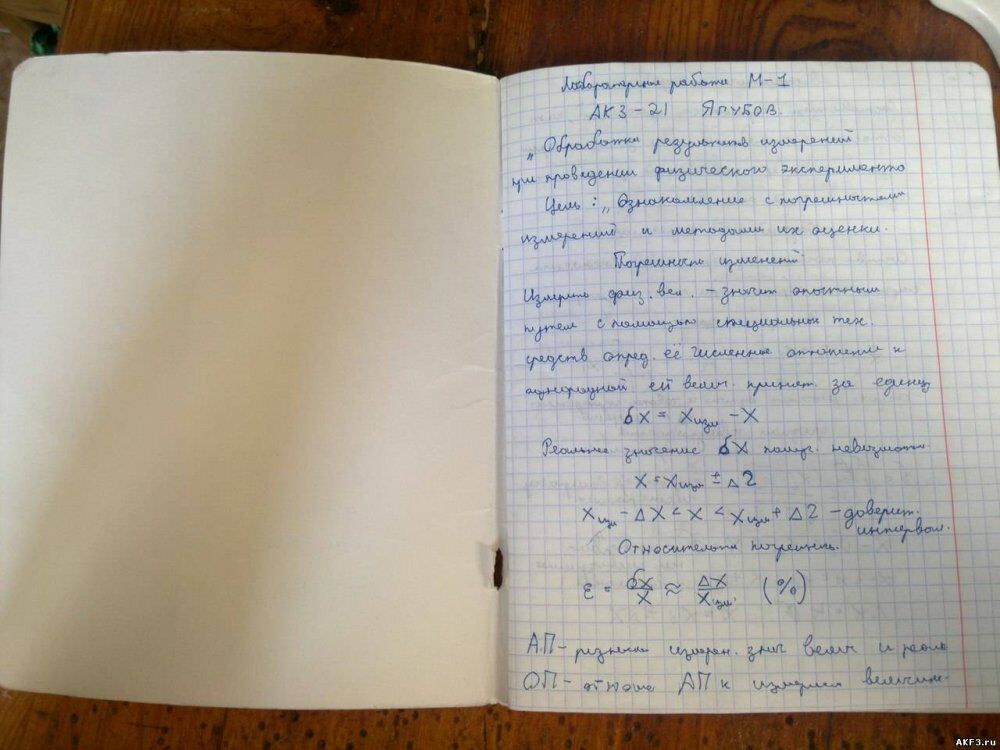 Лабораторная работа М-1
АКЗ-21 ЯГУБОВ.
„Обработка результатов измерений
при проведении физического эксперимента
Цель: „Ознакомление с погрешностями
измерений и методами их оценки.
Погрешность изменений
Измерить физ. вел. - значит опытным
путем с помощью специальных тех.
средств опред. её численное отношение к
однородной ей велич. принят. за единиц
бX = Xизм - X
Реальное значение бX получ. невозможн.
X = Xизм ± Δ2
Xизм - ΔX < X < Xизм + Δ2 - доверит.
интервал.
Относительная погрешн.
ε = бX/X ≈ ΔX/Xизм. (%)
А.П - разность измерен. знач велич и реал
ОП - отноше АП к измерен величин.
AKF3.ru